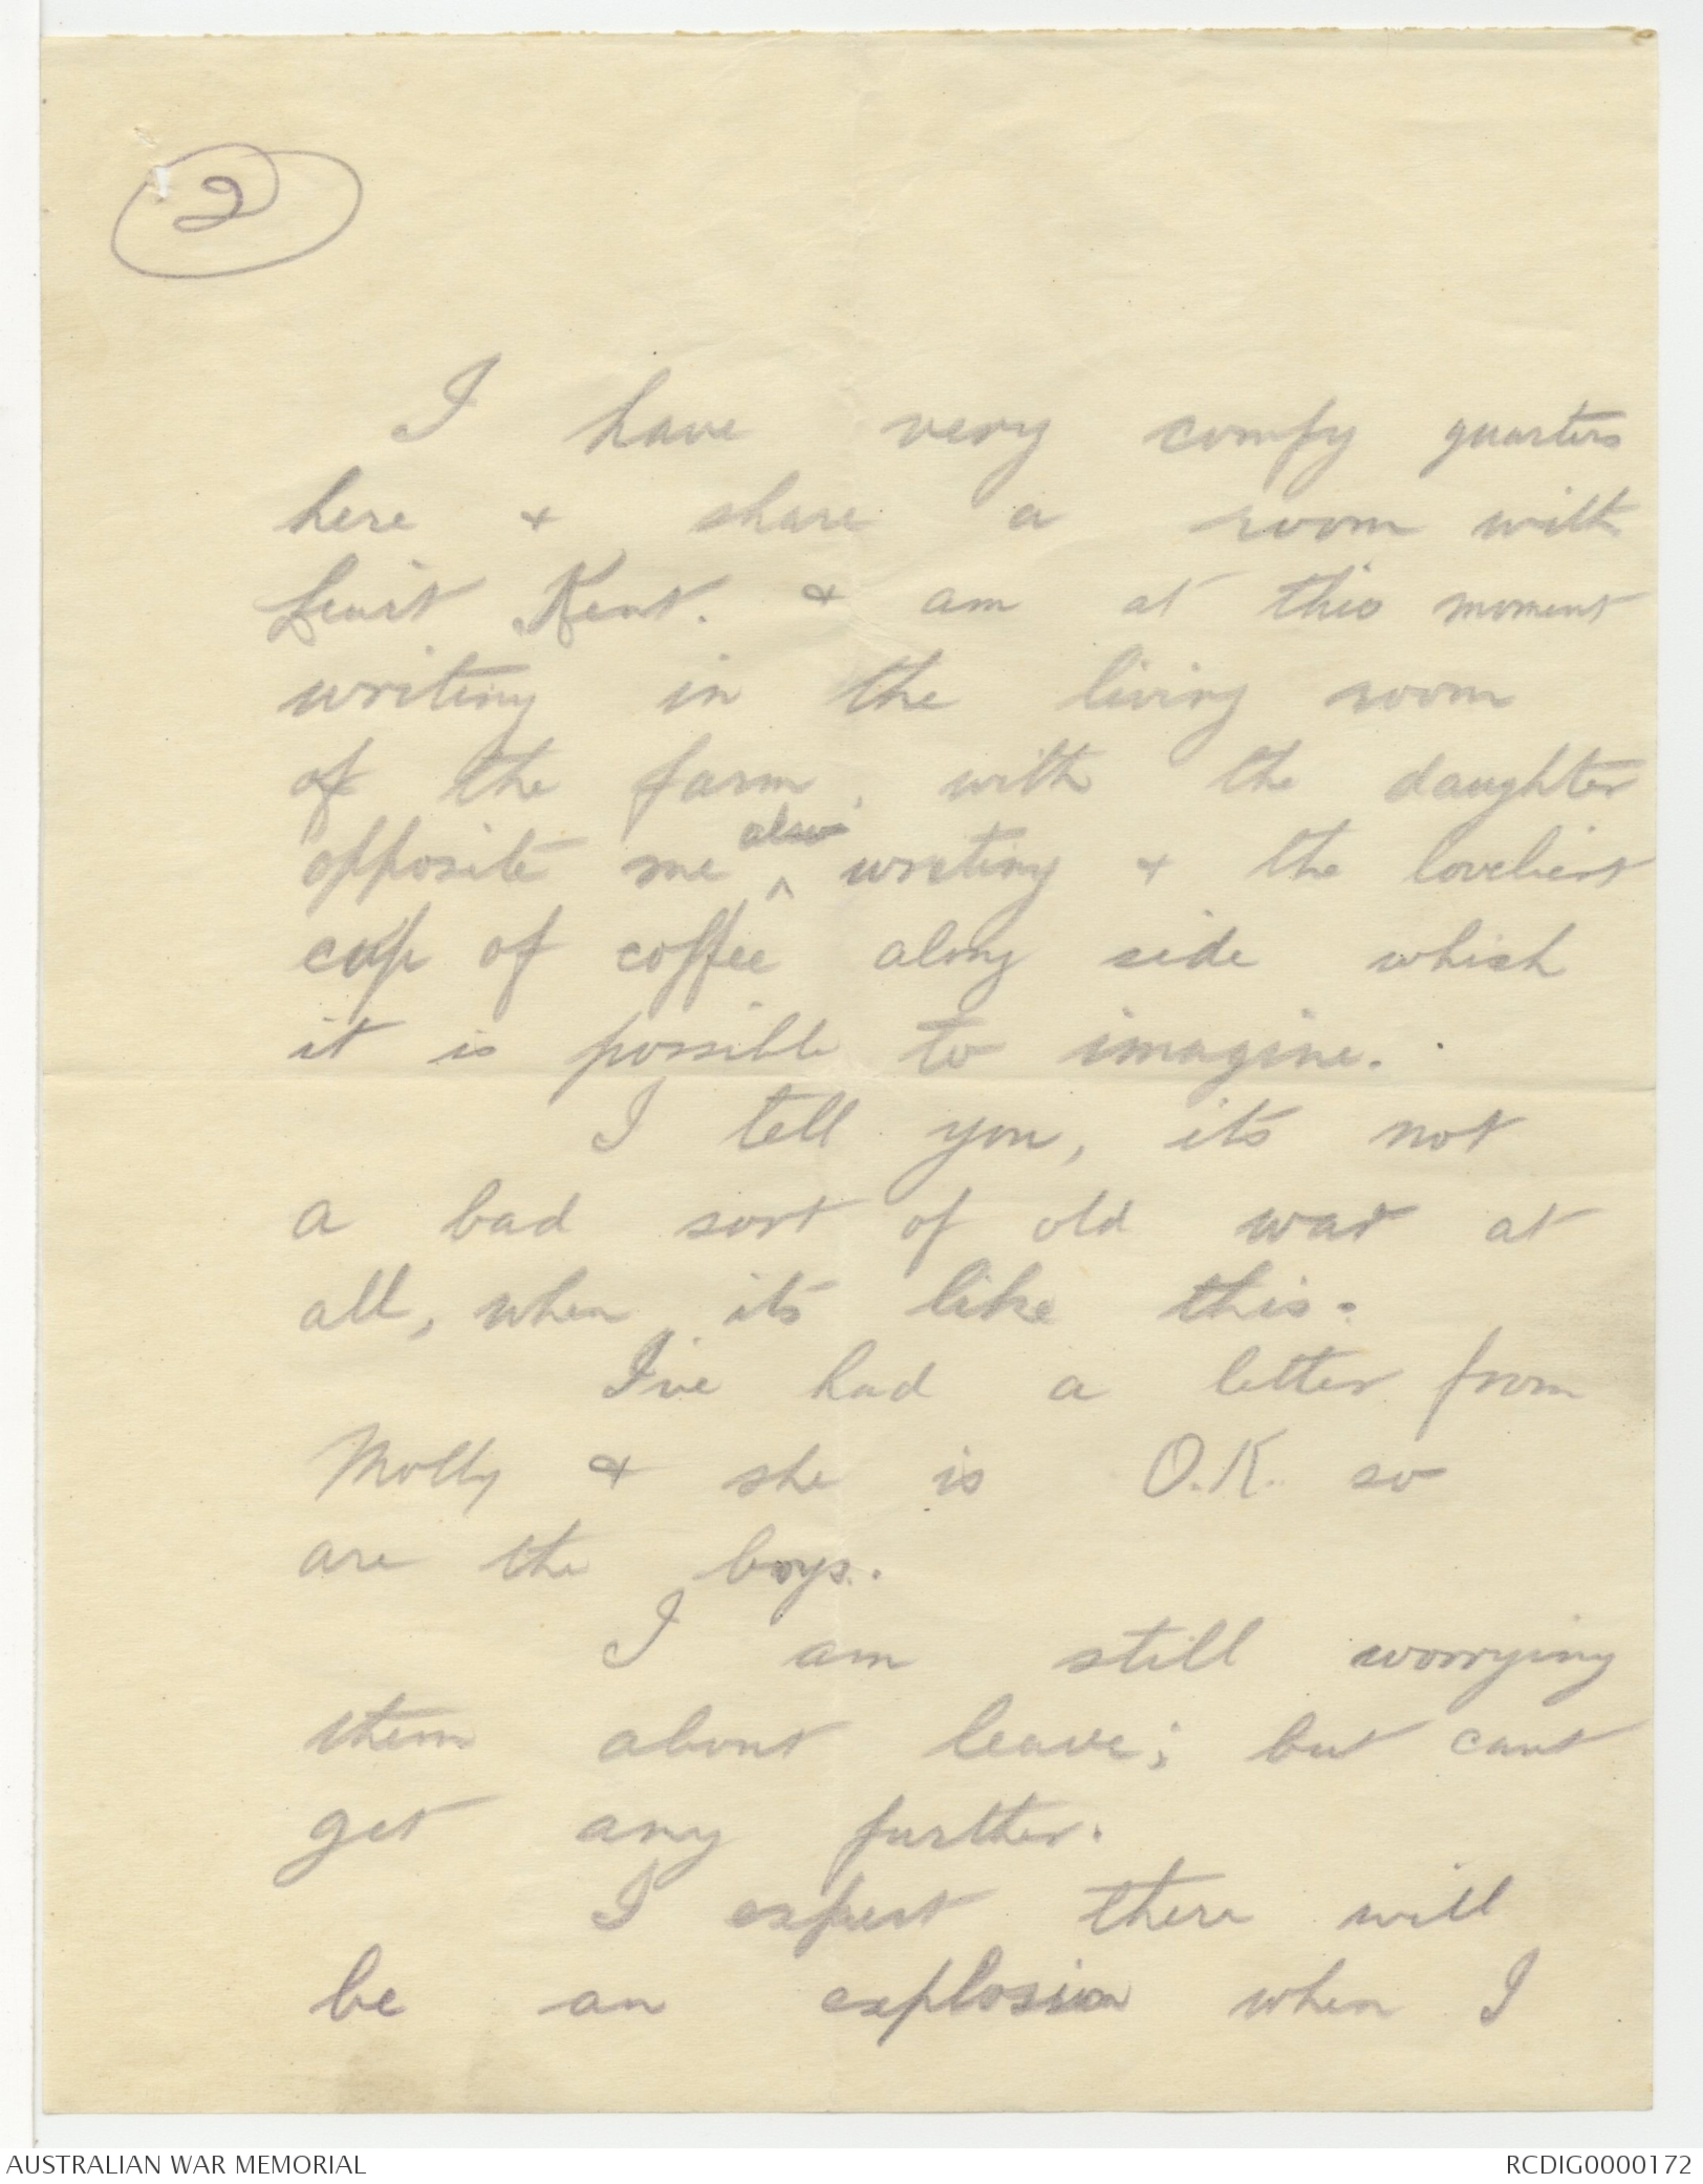 2
I have very comfy quarters
here & share a room with
Leiut Kent. & am at this moment
writing in the living room
of the farm, with the daughter
opposite me ^ also writing & the loveliest
cup of coffee along side which
it is possible to imagine.
I tell you, its not
a bad sort of old war at
all, when its like this.
I've had a letter from
Molly & she is O.K. so
are the boys.
I am still worrying
them about leave; but cant
get any further.
I expect there will
be an explosion when I
AUSTRALIAN WAR MEMORIAL
RCDIG0000172